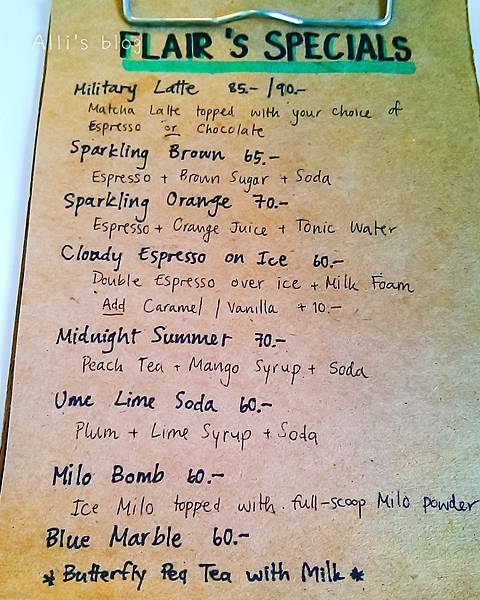 Alli's blog
FLAIR'S SPECIALS
Military Latte 85.- / 90.-
Matcha Latte topped with your choice of
Espresso or Chocolate
Sparkling Brown 65.-
Espresso + Brown Sugar + Soda
Sparkling Orange 70.-
Espresso + Orange Juice + Tonic Water
Cloudy Espresso on Ice 60.-
Double Espresso over ice + Milk Foam
Add Caramel / Vanilla + 10.-
Midnight Summer 70.-
Peach Tea + Mango Syrup + Soda
Ume Lime Soda 60.-
Plum + Lime Syrup + Soda
Milo Bomb 60.-
Ice Milo topped with full-scoop Milo powder
Blue Marble 60.-
* Butterfly Peq Tea with Milk *